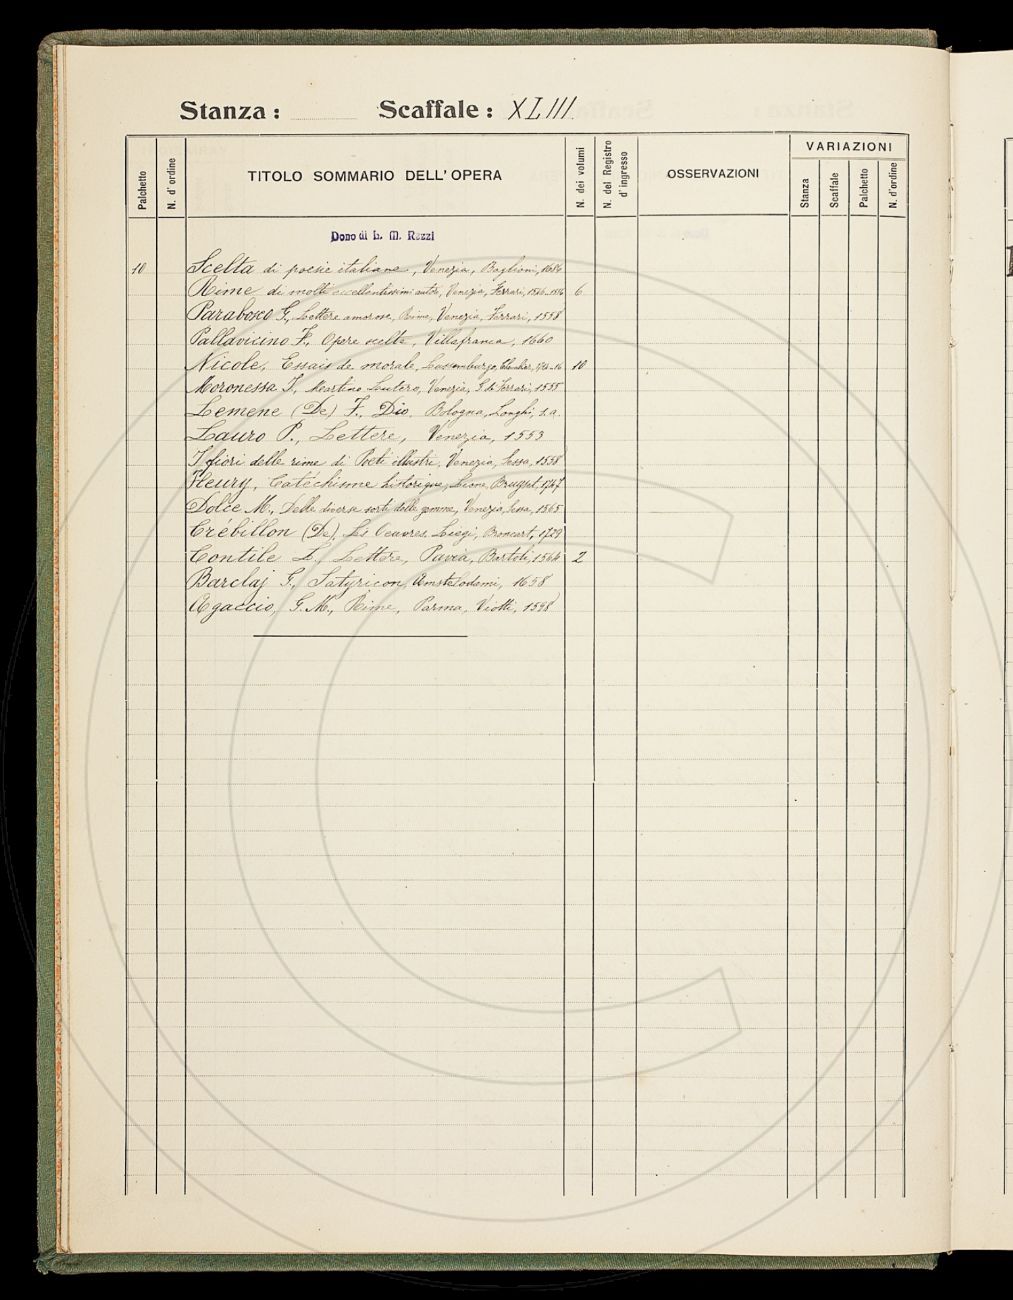 Stanza : Scaffale : XLIII
Palchetto N. d'ordine TITOLO SOMMARIO DELL'OPERA N. dei volumi N. del Registro d'ingresso OSSERVAZIONI VARIAZIONI Stanza Scaffale Palchetto N. d'ordine
Dono di L. M. Rezzi
10 Scelta di poesie italiane, Venezia, Baglioni, 1686
Rime di molti eccellentissimi autori, Venezia, Ferrari, 6
Parabosco G., Lettere amorose, Rime, Venezia, Ferrari, 1558
Pallavicino F., Opere scelte, Villafranca, 1660
Nicole, Essais de morale, Lussemburgo, 10
Moronessa J., Martino Lutero, Venezia, G. de Ferrari, 1555
Lemene (De) F., Dio, Bologna, Longhi, s.a.
Lauro P., Lettere, Venezia, 1553
I fiori delle rime di Poeti illustri, Venezia, Sessa, 1558
Fleury, Catéchisme historique, Lione, Bruyset, 1747
Dolce M., Delle diverse sorti delle gemme, Venezia, Sessa, 1565
Crébillon (De), Les Oeuvres, Liegi, Broncart, 1729
Contile L., Lettere, Pavia, Bartoli, 1564 2
Barclaj G., Satyricon, Amstelodami, 1658
Agaccio, G. M., Rime, Parma, Viotti, 1598